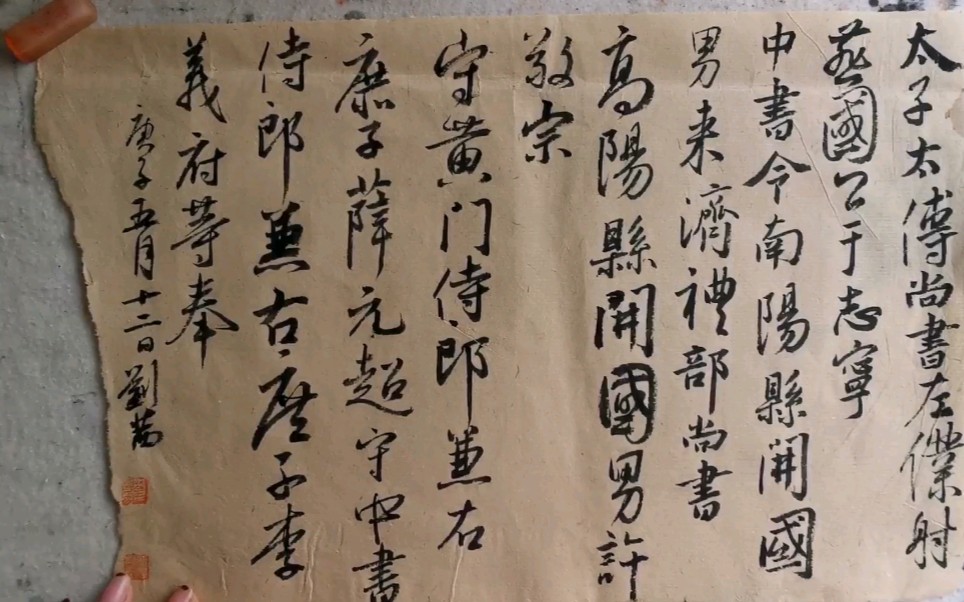 太子太傅尚書左僕射
燕國公于志寧
中書令南陽縣開國
男来濟禮部尚書
高陽縣開國男許
敬宗
守黄门侍郎兼右
庶子薛元超守中書
侍郎兼右庶子李
義府等奉
庚子五月十二日劉